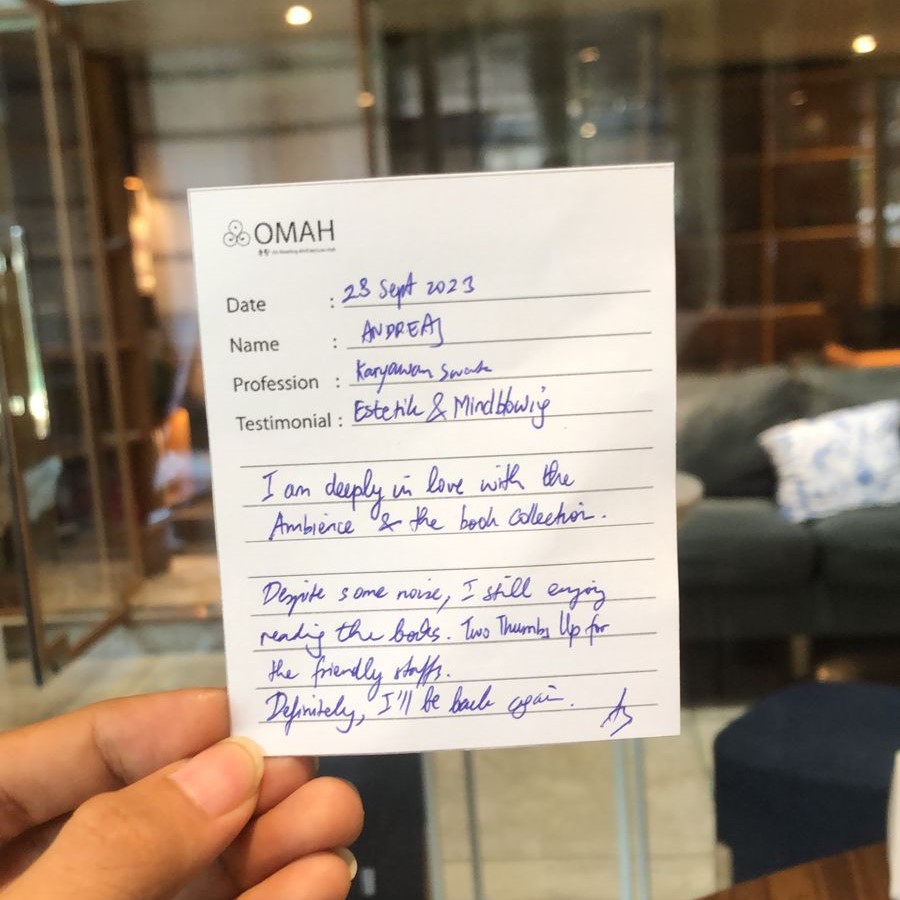 OMAH
Date : 28 Sept 2023
Name : ANDREAS
Profession : Karyawan Swasta
Testimonial : Estetik & Mindblowing
I am deeply in love with the
Ambience & the book collection.
Despite some noise, I still enjoy
reading the books. Two Thumbs Up for
the friendly staffs.
Definitely, I'll be back again.